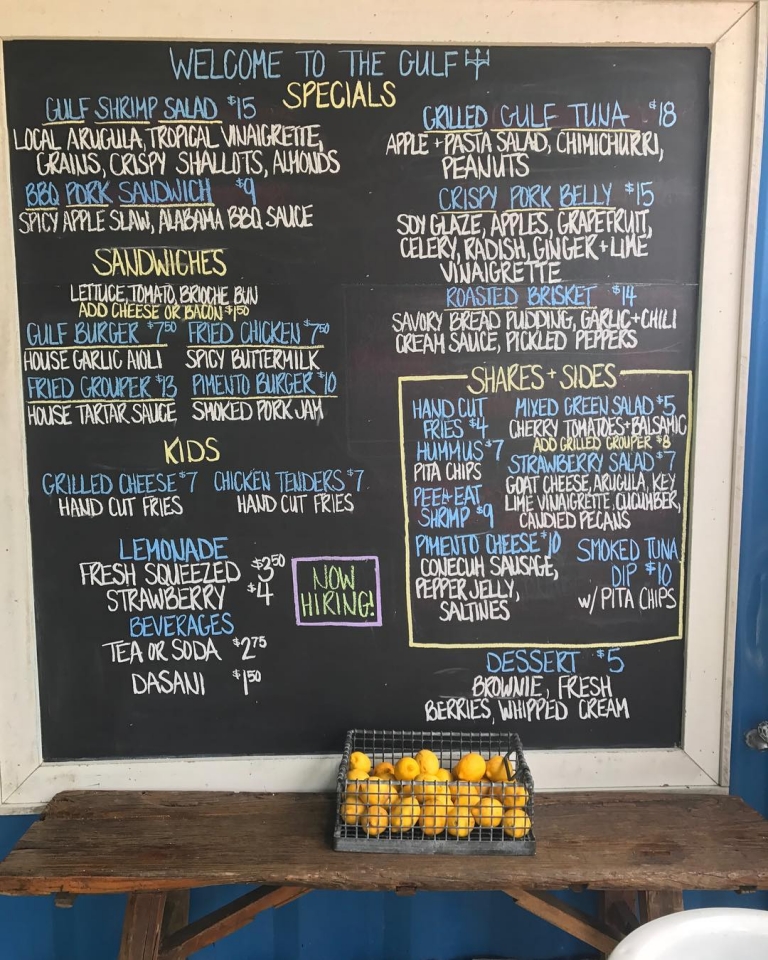 WELCOME TO THE GULF
SPECIALS
GULF SHRIMP SALAD $15
LOCAL ARUGULA, TROPICAL VINAIGRETTE,
GRAINS, CRISPY SHALLOTS, ALMONDS
BBQ PORK SANDWICH $9
SPICY APPLE SLAW, ALABAMA BBQ SAUCE
SANDWICHES
LETTUCE, TOMATO, BRIOCHE BUN
ADD CHEESE OR BACON $1.50
GULF BURGER $7.50 FRIED CHICKEN $7.50
HOUSE GARLIC AIOLI SPICY BUTTERMILK
FRIED GROUPER $13 PIMENTO BURGER $10
HOUSE TARTAR SAUCE SMOKED PORK JAM
KIDS
GRILLED CHEESE $7 CHICKEN TENDERS $7
HAND CUT FRIES HAND CUT FRIES
LEMONADE
FRESH SQUEEZED $3.50
STRAWBERRY $4
BEVERAGES
TEA OR SODA $2.75
DASANI $1.50
NOW
HIRING!
GRILLED GULF TUNA $18
APPLE + PASTA SALAD, CHIMICHURRI,
PEANUTS
CRISPY PORK BELLY $15
SOY GLAZE, APPLES, GRAPEFRUIT,
CELERY, RADISH, GINGER + LIME
VINAIGRETTE
ROASTED BRISKET $14
SAVORY BREAD PUDDING, GARLIC + CHILI
CREAM SAUCE, PICKLED PEPPERS
SHARES + SIDES
HAND CUT
FRIES $4
HUMMUS $7
PITA CHIPS
PEEL + EAT
SHRIMP $9
PIMENTO CHEESE $10
CONECUH SAUSAGE,
PEPPER JELLY,
SALTINES
MIXED GREEN SALAD $5
CHERRY TOMATOES + BALSAMIC
ADD GRILLED GROUPER $8
STRAWBERRY SALAD $7
GOAT CHEESE, ARUGULA, KEY
LIME VINAIGRETTE, CUCUMBER,
CANDIED PECANS
SMOKED TUNA
DIP $10
W/ PITA CHIPS
DESSERT $5
BROWNIE, FRESH
BERRIES, WHIPPED CREAM